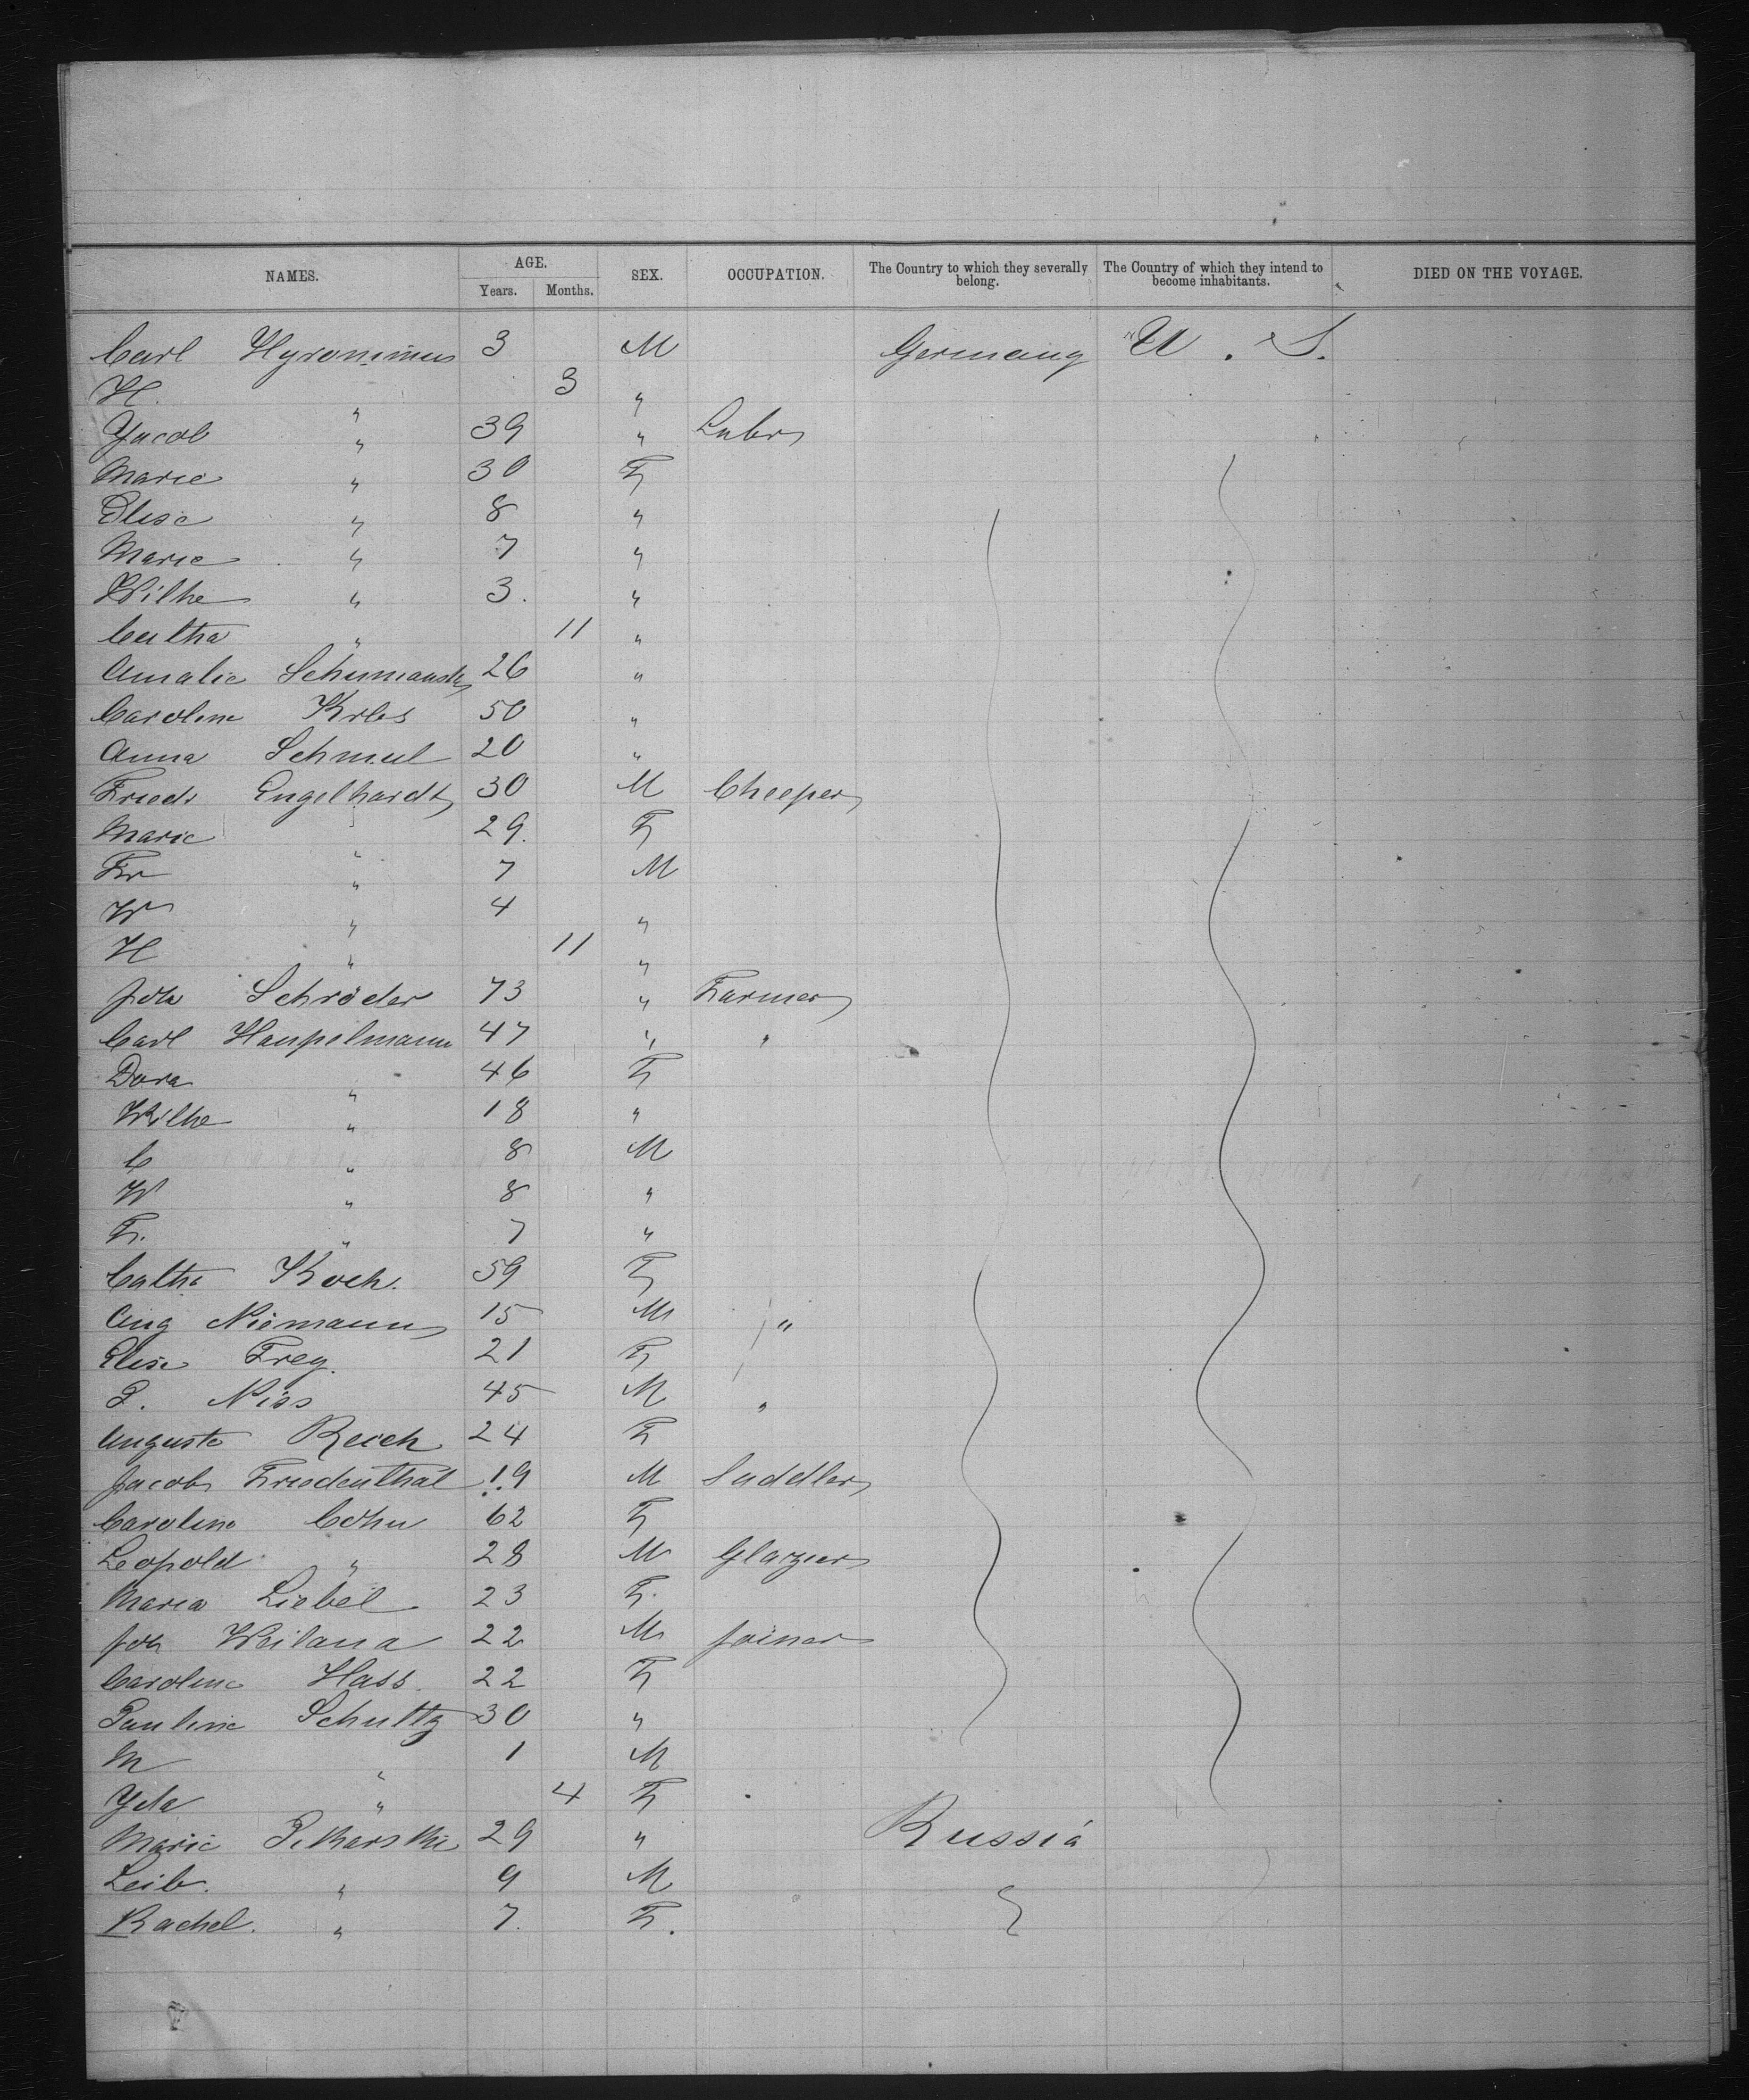 NAMES. AGE. SEX. OCCUPATION. The Country to which they severally belong. The Country of which they intend to become inhabitants. DIED ON THE VOYAGE.
Years. Months.
Carl Hyronimus 3 M Germany U. S.
H. " 3 "
Yacob " 39 " Labr
Marie " 30 F
Elise " 8 "
Marie " 7 "
Wilhe " 3. "
Catha " 11 "
Amalie 26 "
Caroline Krebs 50 "
Anna Schmul 20 "
Friedr Engelhardt 30 M Cheeper
Marie " 29. F
Fr " 7 M
W " 4 "
H " 11 "
Joh Schröder 73 " Farmer
Carl Hanpelmann 47 " "
Dora " 46 F
Wilhe " 18 "
C " 8 M
W " 8 "
F. " 7 "
Catha Koch. 59 F
Aug Niemann 15 M "
Elise Frey. 21 F
P. Niss 45 M "
Auguste Reich 24 F
Jacob Friedenthal 19 M Saddler
Caroline Cohn 62 F
Leopold " 28 M Glazier
Maria Liebel 23 F.
Joh Weiland 22 M Joiner
Caroline Hass. 22 F
Pauline Schultz 30 "
M " 1 M
Yda " 4 F
Marie Pikarski 29 " Russia
Leib. " 9 M
Rachel. " 7. F.